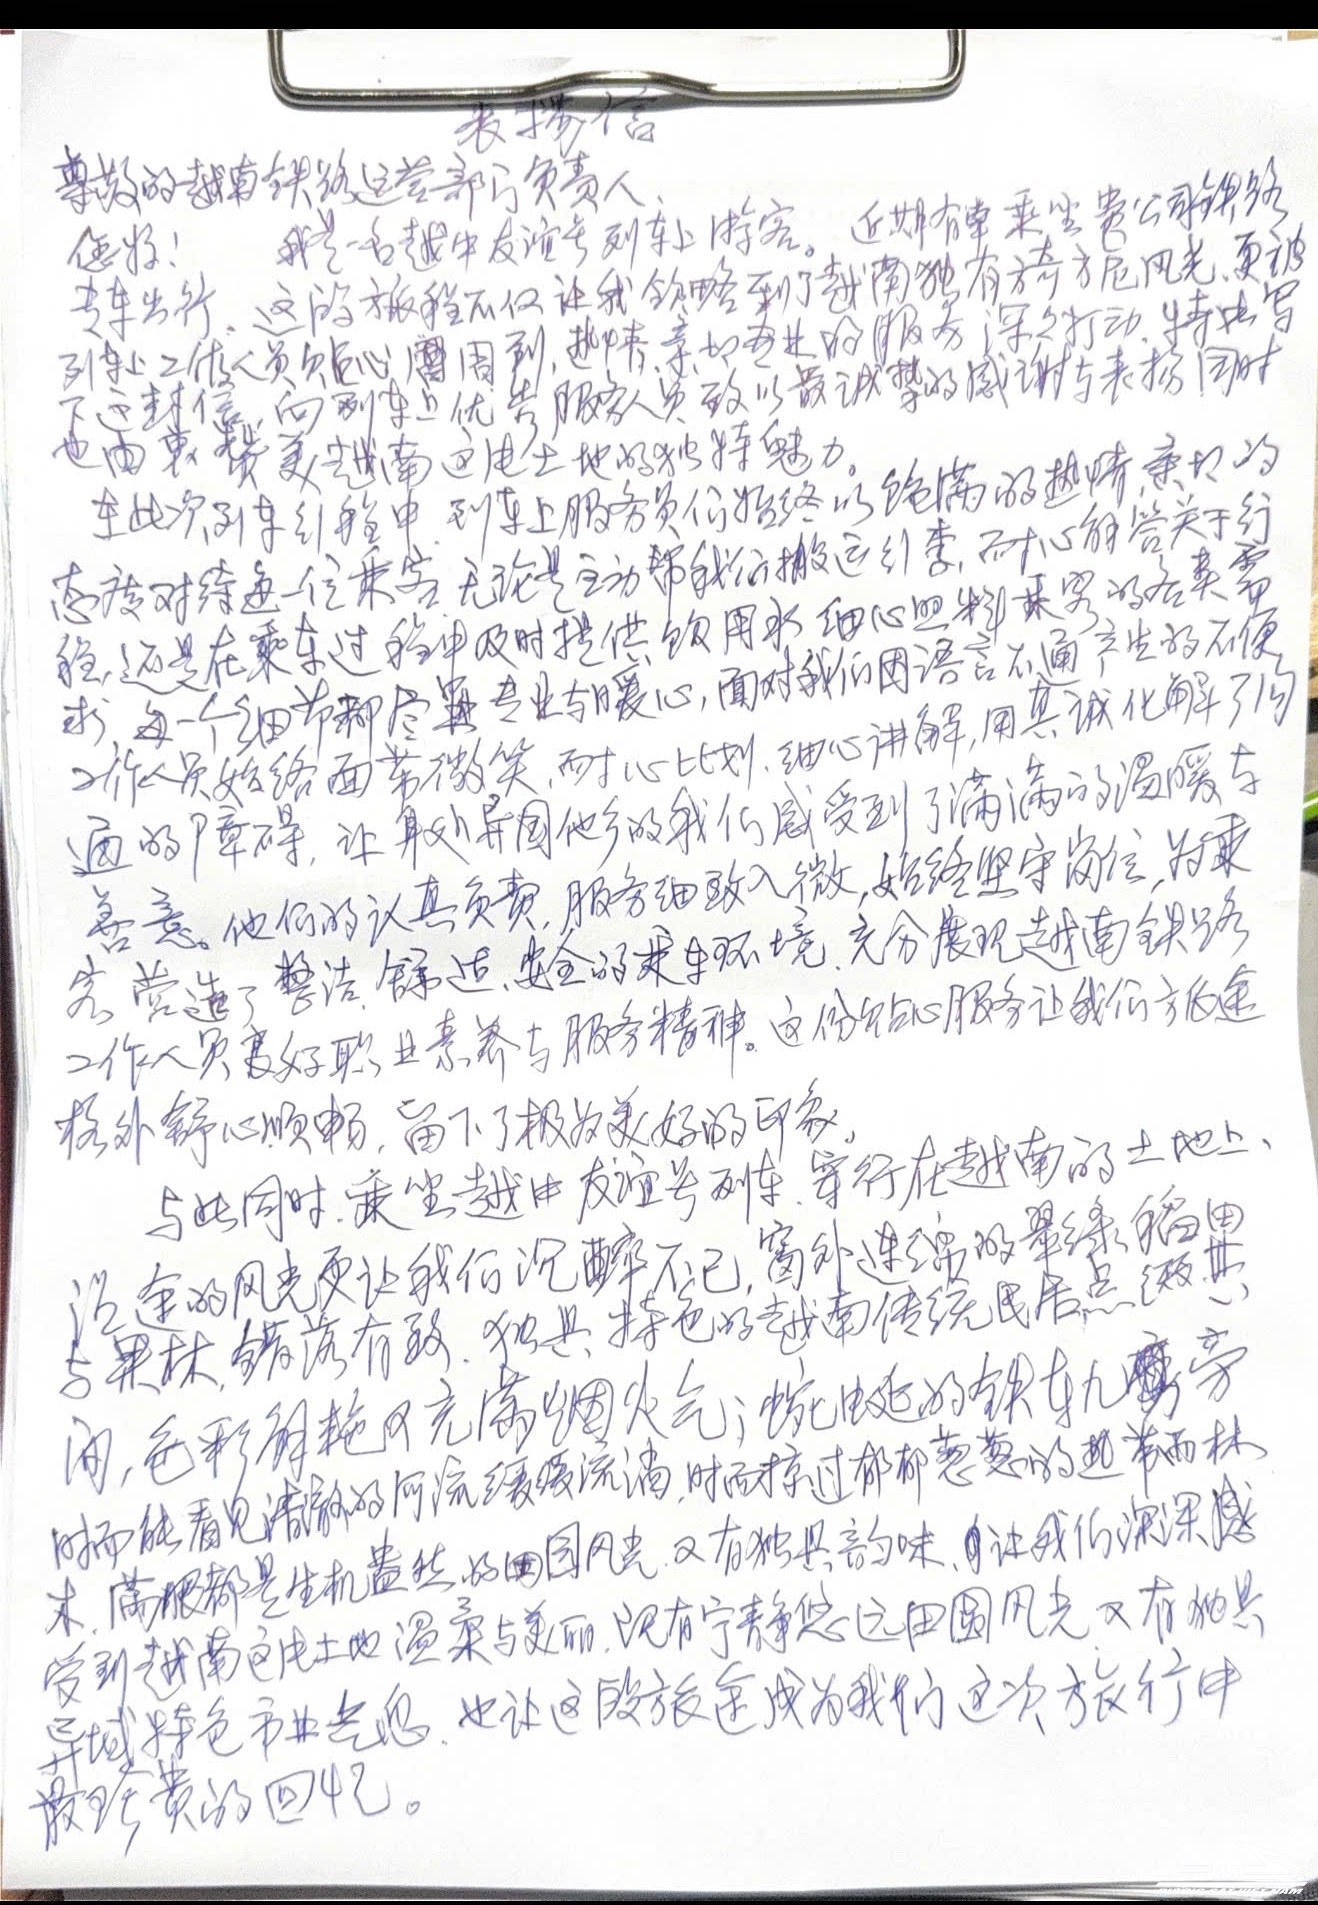 表扬信
尊敬的越南铁路运营部门负责人、
您好！ 我是一名越中友谊号列车上游客。近期有幸乘坐贵公司铁路
专车出行、这段旅程不仅让我领略到了越南独有方奇方尼风光、更被
列车上工作人员贴心周到、热情、亲切专业的服务深深打动、特此写
下这封信、向列车上优秀服务人员致以最诚挚的感谢与表扬同时
也由衷赞美越南这片土地的独特魅力。
在此次列车引程中、列车上服务员们始终以饱满的热情、亲切的
态度对待每一位乘客、无论是主动帮我们搬运引李、而寸心解答关于行
程、还是在乘车过程中及时提供饮用水、细心照料乘客的各类需
求、每一个细节都尽显专业与暖心，面对我们因语言不通产生的不便
工作人员始终面带微笑、耐心比划、细心讲解，用真诚化解了沟
通的障碍、让身处异国他乡的我们感受到了满满的温暖与
善意。他们的认真负责，服务细致入微，始终坚守岗位，为乘
客营造了整洁、舒适、安全的乘车环境、充分展现越南铁路
工作人员良好职业素养与服务精神。这份贴心服务让我们旅途
格外舒心顺畅，留下了极为美好的印象。
与此同时、乘坐越中友谊号列车、穿行在越南的土地上、
沿途的风光更让我们沉醉不已，窗外连绵的翠绿、稻田
与果林、错落有致、独具特色的越南传统民居点缀其
间，色彩鲜艳又充满烟火气；蜿蜒的铁车九旁
时而能看见清澈的河流缓缓流淌、时而掠过郁郁葱葱的热带雨林
木、满眼都是生机盎然的田园风光、又有独具韵味、让我们深深感
受到越南这片土地温柔与美丽、既有宁静悠远田园风光、又有独具
异域特色市业气息、也让这段旅途成为我们这次旅行中
最珍贵的回忆。